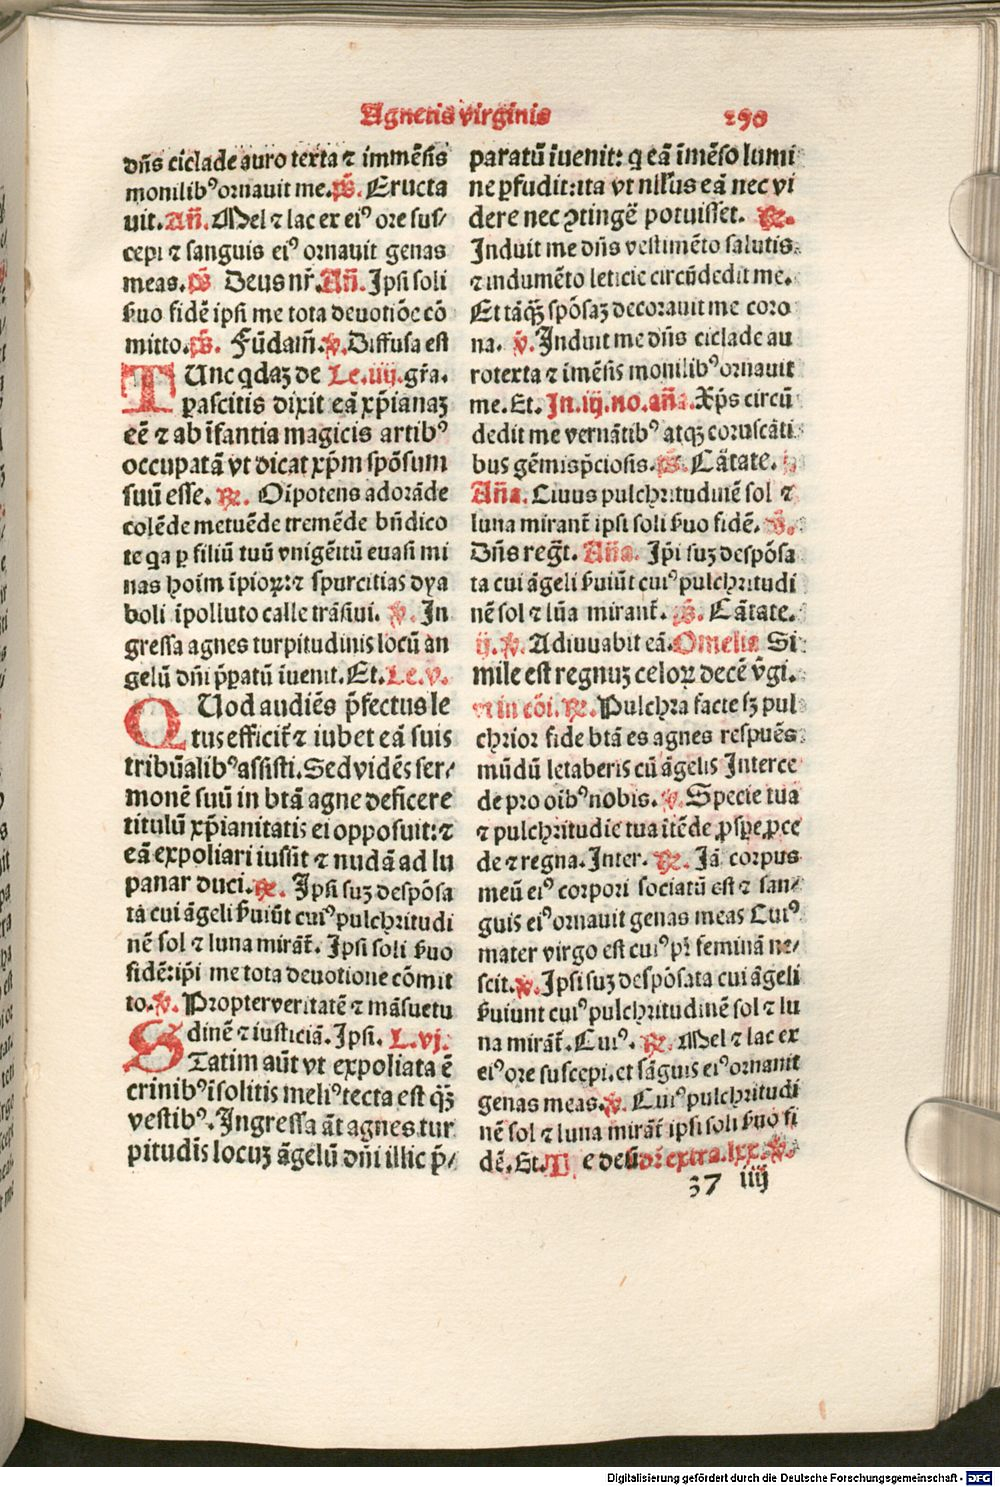 Agnetis virginis 290
dn̄s ciclade auro texta ⁊ immēsis
monilibꝰ ornauit me. ps̄. Eructa
uit. An̄. Mel ⁊ lac ex eiꝰ ore sus⸗
cepi ⁊ sanguis eiꝰ ornauit genas
meas. ps̄ Deus nr̄. An̄. Ipsi soli
ẜuo fidē ipsi me tota deuotiōe cō
mitto. ps̄. Fūdam̄. ℣. Diffusa est
TUnc qdaꝫ de Le.iiij. gr̄a.
ꝑascitis dixit eā xp̄ianaꝫ
eē ⁊ ab īfantia magicis artibꝰ
occupatā vt dicat xp̄m spōsum
suū esse. ℟. Oīpotens adorāde
colēde metuēde tremēde bn̄dico
te qa ꝑ filiū tuū vnigēitū euasi mi
nas hoīm īpioꝝ: ⁊ spurcitias dya
boli īpolluto calle trāsiui. ℣. In
gressa agnes turpitudinis locū an
gelū dn̄i p̄patū īuenit. Et. Le.v.
QUod audiēs p̄fectus le
tus efficit̄ ⁊ iubet eā suis
tribūalibꝰ assisti. Sed vidēs ser⸗
monē suū in btā agne deficere
titulū xp̄ianitatis ei opposuit: ⁊
eā expoliari iussit ⁊ nudā ad lu
panar duci. ℟. Ipsi suꝫ despōsa
ta cui āgeli ẜuiūt cuiꝰ pulchritudi
nē sol ⁊ luna mirāt̄. Ipsi soli ẜuo
fidē: ip̄i me tota deuotione cōmit
to. ℣. Propter veritatē ⁊ māsuetu
dinē ⁊ iusticiā. Ipsi. L.vj.
STatim aūt vt expoliata ē
crinibꝰ īsolitis meliꝰ tecta est qꝫ̄
vestibꝰ. Ingressa āt agnes tur
pitudīs locuꝫ āgelū dn̄i illic p̄⸗
paratū īuenit: q eā īmēso lumi
ne ꝑfudit: ita vt nllꝰus eā nec vi
dere nec ꝯtingē potuisset. ℟.
Induit me dn̄s vestimēto salutis
⁊ indumēto leticie circūdedit me.
Et tāqꝫ̄ spōsaꝫ decorauit me coro
na. ℣. Induit me dn̄s ciclade au
ro texta ⁊ īmēsis monilibꝰ ornauit
me. Et. In.iij.no.an̄a. Xp̄s circū
dedit me vernātibꝰ atqꝫ coruscāti
bus gēmis p̄ciosis. ps̄. Cātate.
An̄a. Cuius pulchritudinē sol ⁊
luna mirant̄ ipsi soli ẜuo fidē. ps̄.
Dn̄s reḡt. An̄a. Ip̄i suꝫ despōsa
ta cui āgeli ẜuiūt cuiꝰ pulchritudi
nē sol ⁊ lūa mirant̄. ps̄. Cātate.
ij. ℣. Adiuuabit eā. Omelia Si
mile est regnuꝫ celoꝝ decē v̄gi.
vt in cōi. ℟. Pulchra facie sꝫ pul
chrior fide btā es agnes respuēs
mūdū letaberis cū āgelis Interce
de pro oībꝰ nobis. ℣. Specie tua
⁊ pulchritudīe tua ītēde ꝓsꝑe ꝓce
de ⁊ regna. Inter. ℟. Iā corpus
meū eiꝰ corpori sociatū est ⁊ san⸗
guis eiꝰ ornauit genas meas Cuiꝰ
mater virgo est cuiꝰ pr̄ feminā ne⸗
scit. ℣. Ipsi suꝫ despōsata cui āgeli
ẜuiunt cuiꝰ pulchritudinē sol ⁊ lu
na mirāt̄. Cuiꝰ. ℟. Mel ⁊ lac ex
eiꝰ ore suscepi. et sāguis eiꝰ ornauit
genas meas. ℣. Cuiꝰ pulchritudi
nē sol ⁊ luna mirāt̄ ipsi soli ẜuo fi
dē. Et. Te deū dr̄ extra.lxx. ℣.
37 iiij
Digitalisierung gefördert durch die Deutsche Forschungsgemeinschaft - DFG